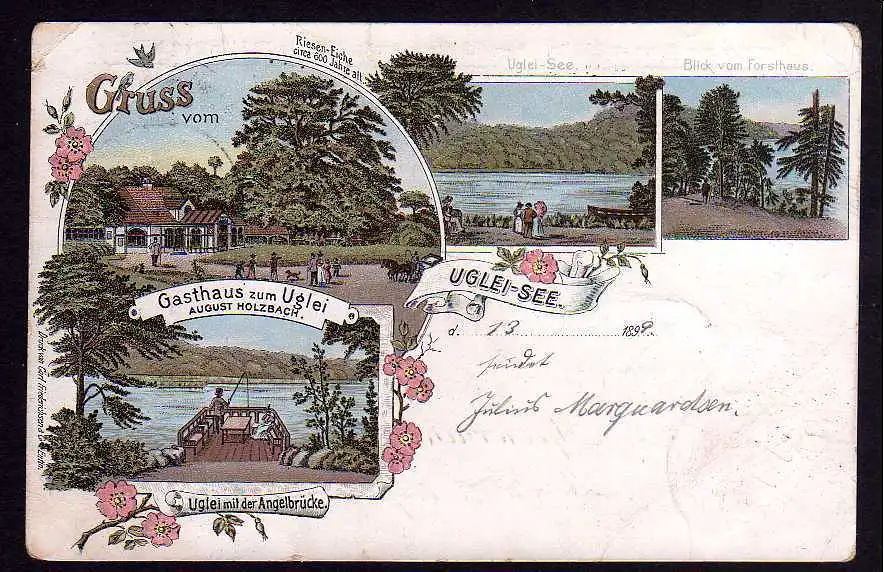 Gruss
vom
Riesen-Eiche
circa 600 Jahre alt.
Uglei-See.
Blick vom Forsthaus.
Gasthaus zum Uglei
AUGUST HOLZBACH.
UGLEI-SEE.
d. 13 1899.
sendet
Julius Marquardsen.
Uglei mit der Angelbrücke.